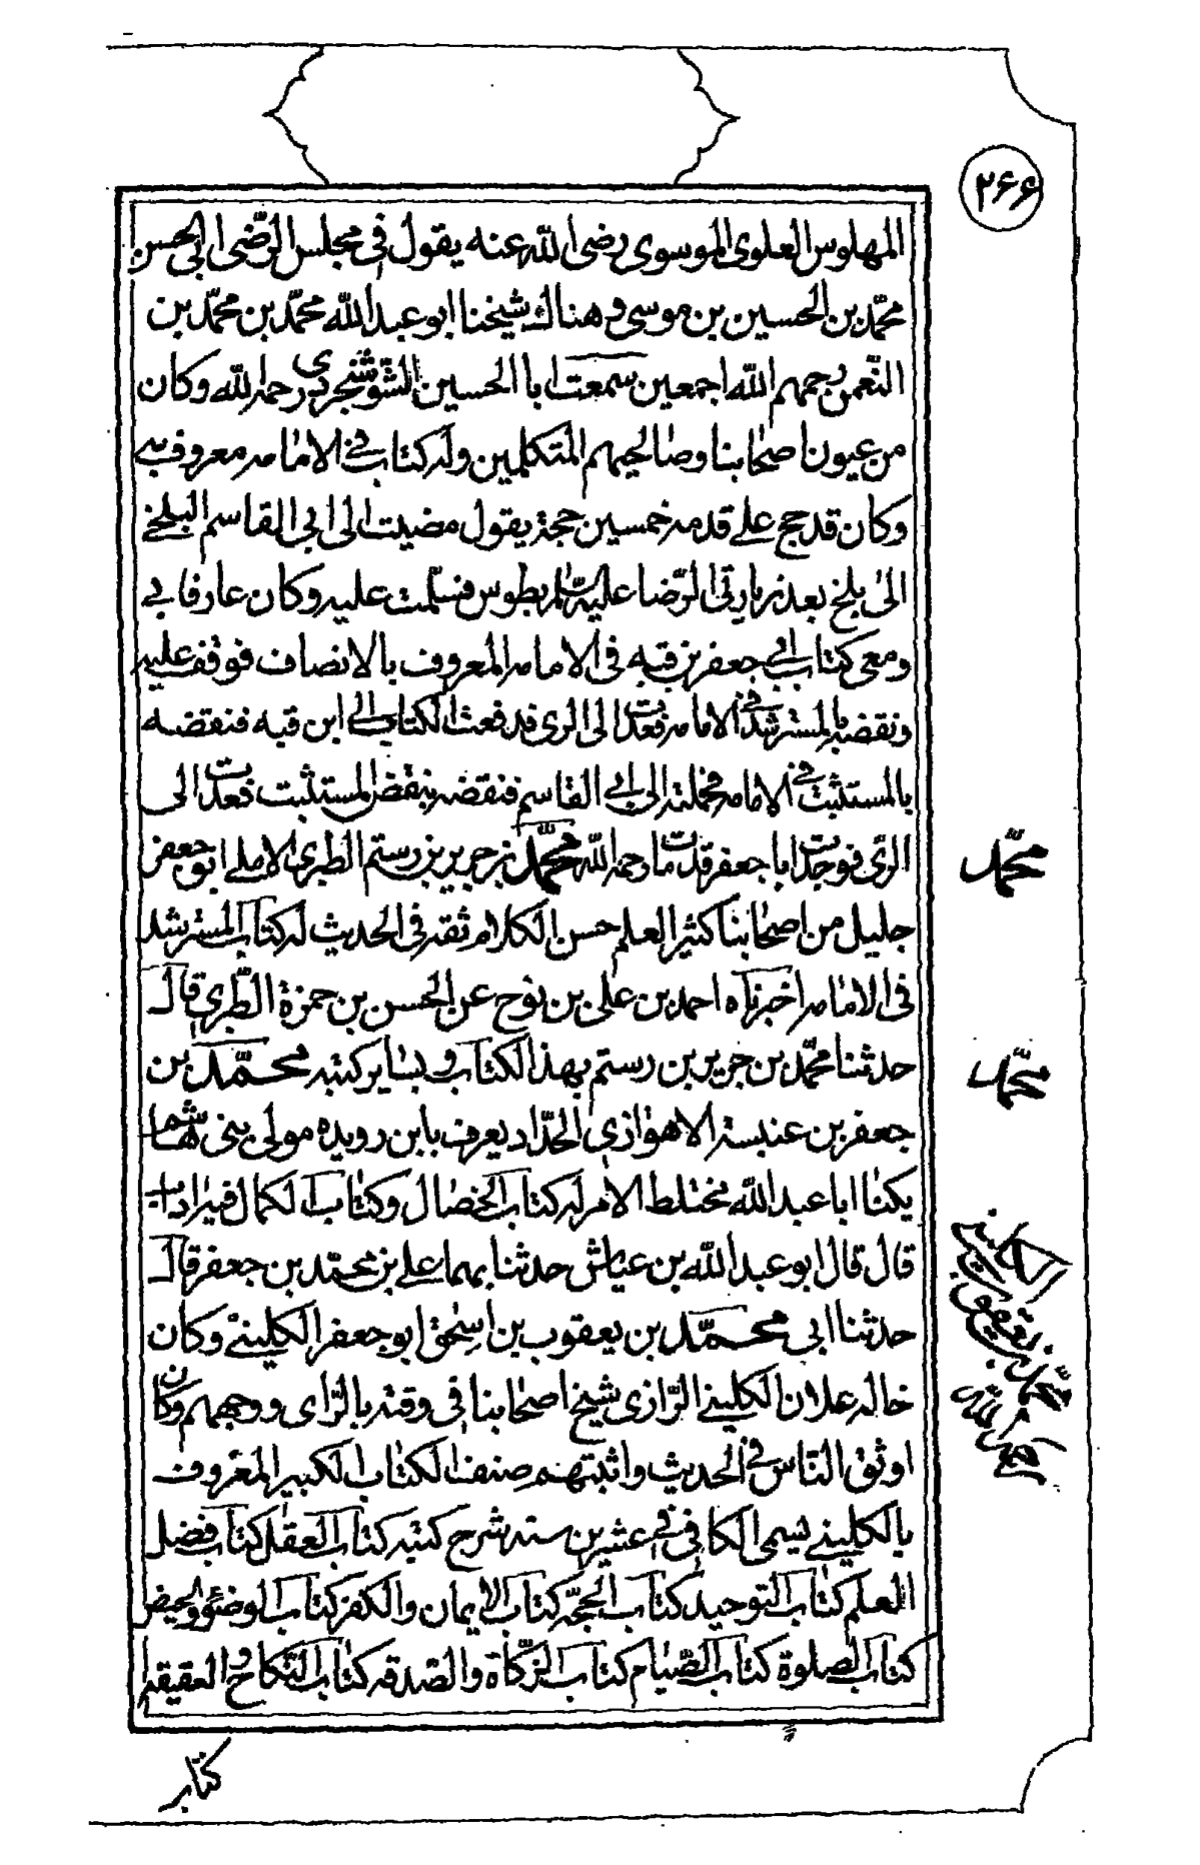 ٢۶۶
المهلوس العلوى الموسوى رضى الله عنه يقول فى مجلس الرّضى ابى الحسن
محمّد بن الحسين بن موسى وهناك شيخنا ابو عبد الله محمّد بن محمّد بن
النّعمن رحمهم الله اجمعين سمعت ابا الحسين السّوسنجردى رحمه الله وكان
من عيون اصحابنا وصالحيهم المتكلمين وله كتاب فى الامامه معروف به
وكان قد حج على قدمه خمسين حجة يقول مضيت الى ابى القاسم البلخى
الى بلخ بعد زيارتى الرّضا عليه السّلم بطوس فسلّمت عليه وكان عارفا بى
ومعى كتاب ابى جعفر بن قبه فى الامامه المعروف بالانصاف فوقف عليه
ونقضه بالمسترشد فى الامامه فعدت الى الرى فدفعت الكتاب الى ابن قبه فنقضه
بالمستثبت فى الامامه فحملته الى ابى القاسم فنقضه بنقض المستثبت فعدت الى
الرّى فوجدت ابا جعفر قد مات رحمه الله محمّد بن جرير بن رستم الطبرى الاملى ابو جعفر
جليل من اصحابنا كثير العلم حسن الكلام ثقه فى الحديث له كتاب المسترشد
فى الامامه اخبرناه احمد بن على بن نوح عن الحسن بن حمزة الطّبرى قال
حدثنا محمّد بن جرير بن رستم بهذا الكتاب و بساير كتبه محمّد بن
جعفر بن عنبسة الاهوازى الحدّاد يعرف بابن رويده مولى بنى هاشم
يكنا ابا عبد الله مختلط الامر له كتاب الخصال وكتاب الكمال
قال قال ابو عبد الله بن عياش حدثنا بهما على بن محمّد بن جعفر قال
حدثنا ابى محمّد بن يعقوب بن اسحق ابو جعفر الكلينى وكان
خاله علان الكلينى الرّازى شيخ اصحابنا فى وقته بالرّاى ووجههم وكان
اوثق النّاس فى الحديث واثبتهم صنف الكتاب الكبير المعروف
بالكلينى يسمى الكافى فى عشرين سنه شرح كتبه كتاب العقل كتاب فضل
العلم كتاب التوحيد كتاب الحجّه كتاب الايمان والكفر كتاب الوضوء والحيض
كتاب الصلوة كتاب الصّيام كتاب الزّكاة والصّدقه كتاب النّكاح والعقيقه
محمّد
محمّد
الكلينى
محمّد بن يعقوب
رحمه الله
كتاب